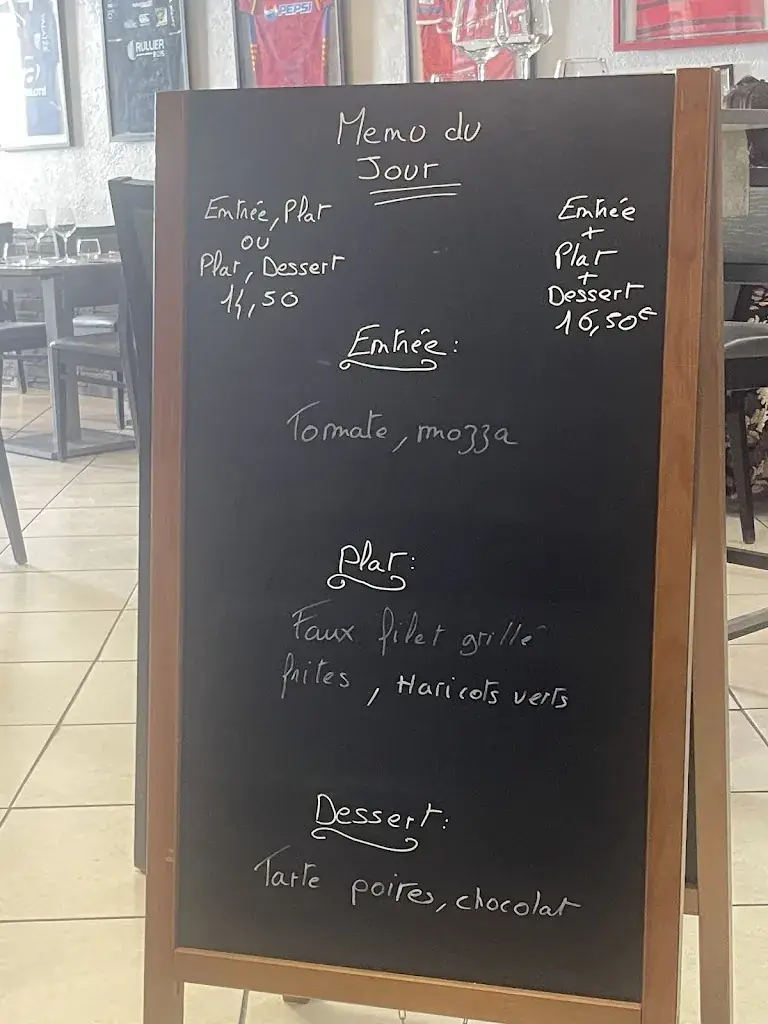 PEPSI
Memo du
Jour
Entrée, Plat
ou
Plat, Dessert
14,50
Entrée
+
Plat
+
Dessert
16,50€
Entrée:
Tomate, mozza
Plat:
Faux filet grillé
frites, Haricots verts
Dessert:
Tarte poires, chocolat